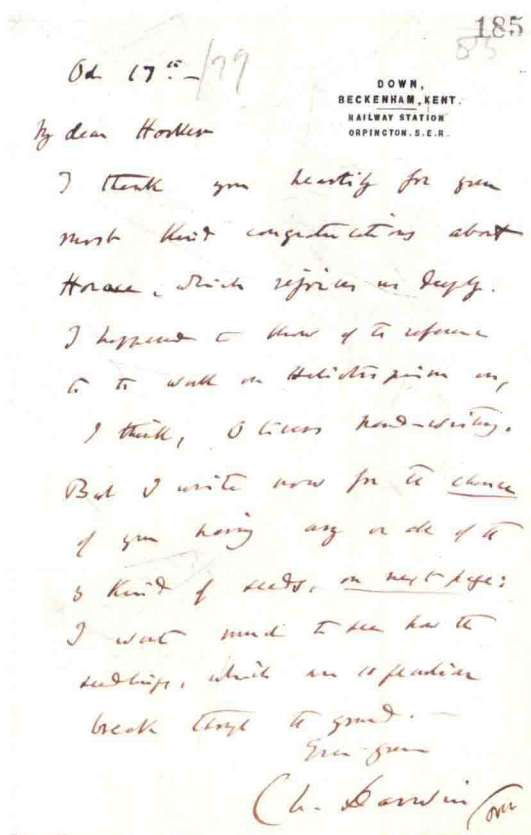 185
85
Oct 17th /79
DOWN,
BECKENHAM, KENT.
RAILWAY STATION
ORPINGTON. S.E.R.
My dear Hooker
I thank you heartily for your
most kind congratulations about
Horace, which rejoices us deeply.
I happened to know of the reference
to the work on Heliotropism in,
I think, Olivers hand-writing.
But I write now for the chance
of your having any or all of the
3 kind of seeds, on next page:
I want much to see how the
seedlings, which are so peculiar
break through the ground.—
Ever yours
Ch. Darwin
(over